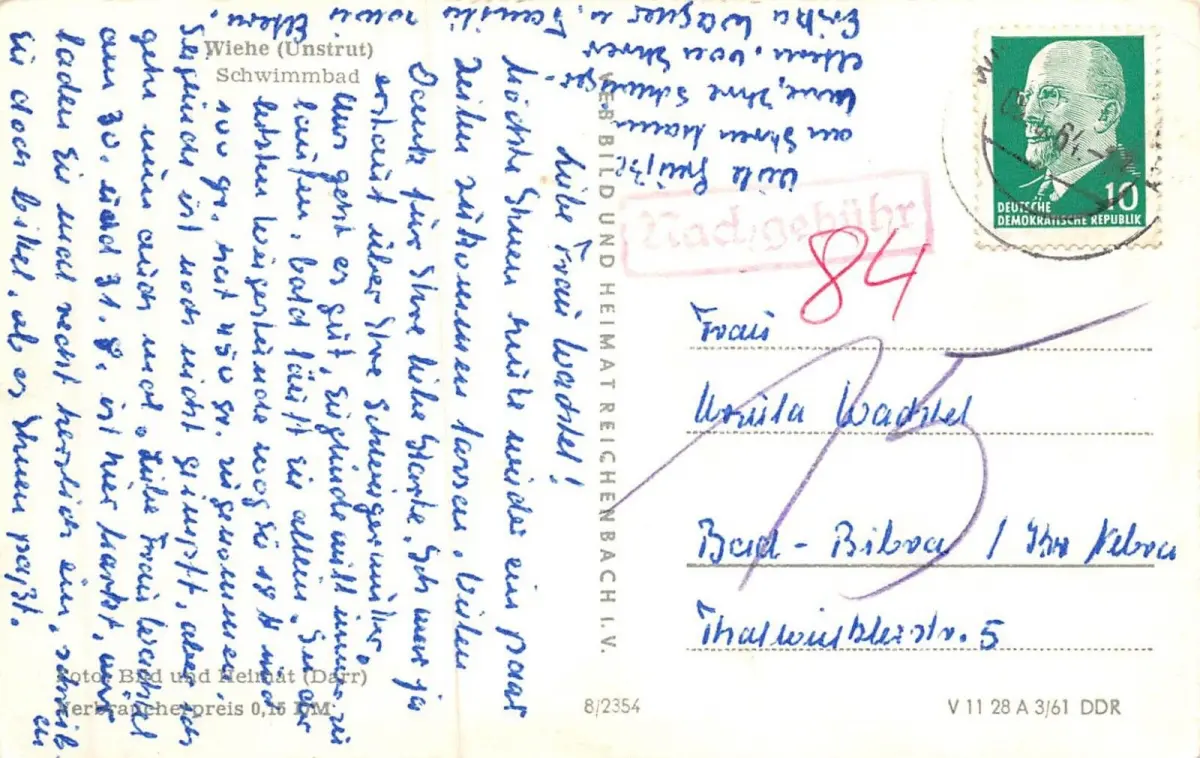 Wiehe (Unstrut)
Schwimmbad
Liebe Frau Wachtel!
Möchte Ihnen heute wieder ein paar
Zeilen zukommen lassen. Vielen
Dank für Ihre liebe Karte. Ich war ja
erstaunt über Ihre Schwiegermutter.
Uns geht es gut, Sieglinde will immer zu
laufen, bald läuft sie allein. In der
letzten Wiegestunde wog sie 18 und
100 gr., hat 450 gr. zugenommen.
Sieglinde ist noch nicht geimpft, aber ich
gehe nun auch mal. Liebe Frau Wachtel
am 30. und 31. 8. ist hier Markt, wir
laden Sie mal recht herzlich ein, schreib
en
Sie doch bitte, ob es Ihnen paßt.
Viele Grüße
an Ihren Mann
Ihre Schwieger-
eltern. von Ihrer
Erika Wagner u. Familie sowie
Eltern.
Foto: Bild und Heimat (Darr)
Verbraucherpreis 0,15 DM
VEB BILD UND HEIMAT REICHENBACH I. V.
8/2354
V 11 28 A 3/61 DDR
10
DEUTSCHE
DEMOKRATISCHE REPUBLIK
Nachgebühr
84
Frau
Ursula Wachtel
Bad-Bibra / Krs Nebra
Thalwinklerstr. 5